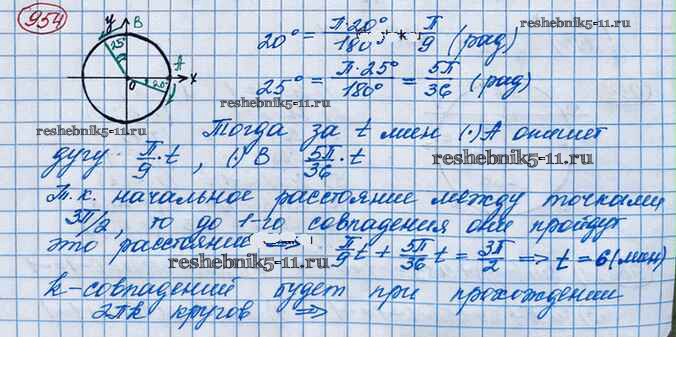 954
y B
25° A
O 20° x
20° = π·20°/180° = π/9 (рад)
25° = π·25°/180° = 5π/36 (рад)
reshebnik5-11.ru
reshebnik5-11.ru
reshebnik5-11.ru
Тогда за t мин (·)A опишет
дугу π/9·t, (·) B 5π/36·t
reshebnik5-11.ru
Т.к. начальное расстояние между точками
3π/2, то до 1-го совпадения они пройдут
это расстояние => π/9 t + 5π/36 t = 3π/2 => t = 6 (мин)
reshebnik5-11.ru
k-совпадений будет при прохождении
2πk кругов =>